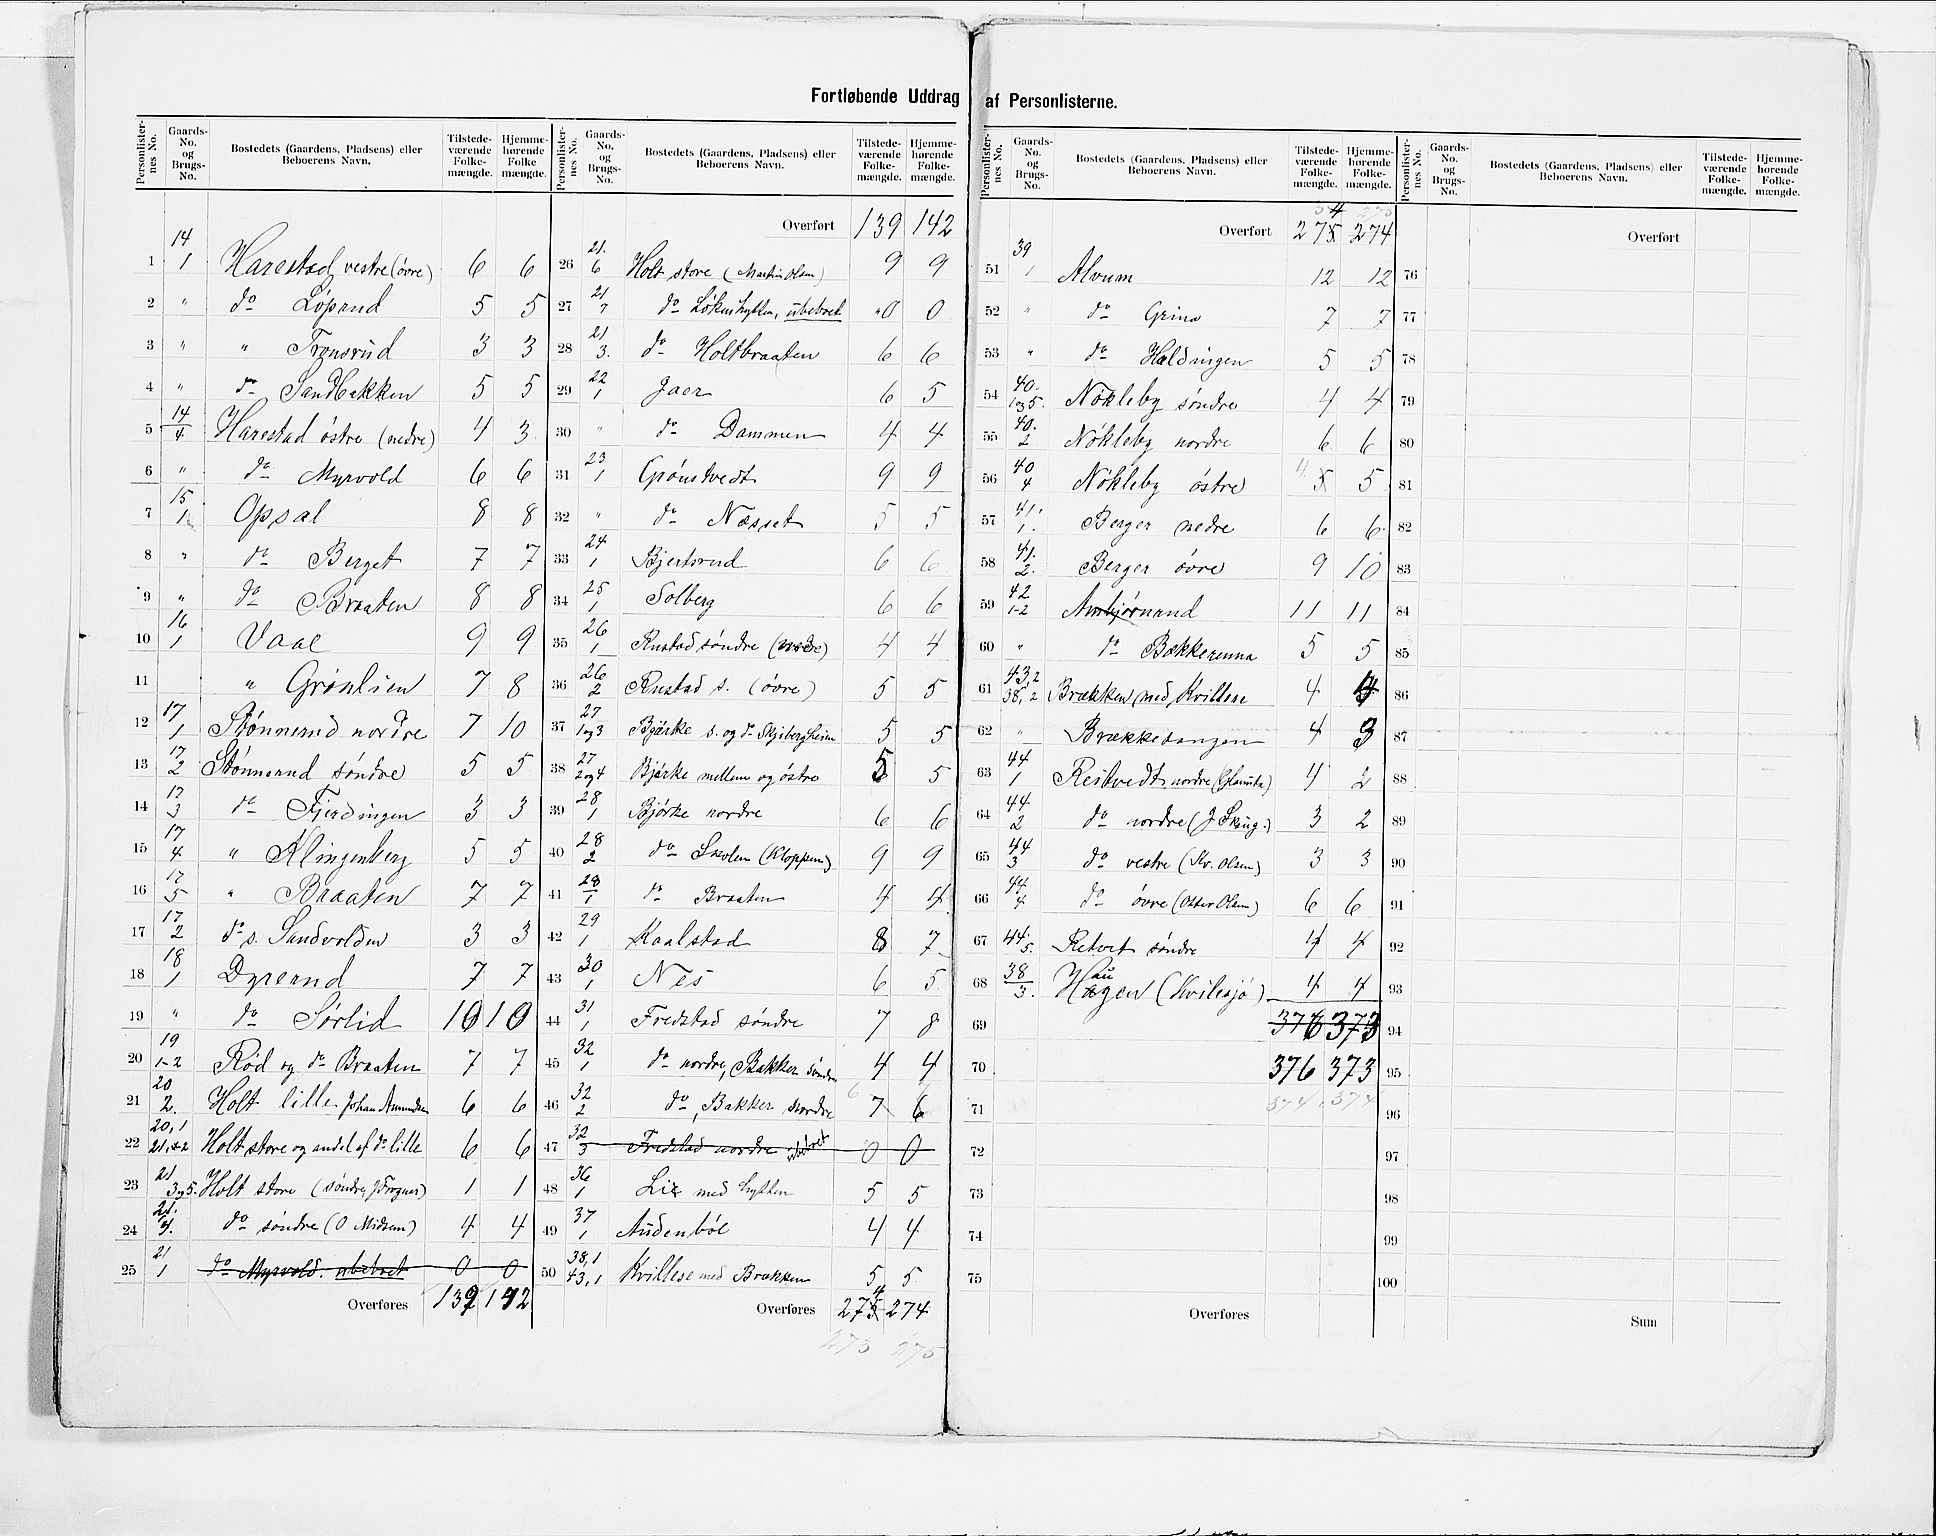 Fortløbende Uddrag af Personlisterne.
Personlisternes No. Gaards-No. og Brugs-No. Bostedets (Gaardens, Pladsens) eller Beboerens Navn. Tilstedeværende Folkemængde. Hjemmehørende Folkemængde.
1 14/1 Harestad vestre (øvre) 6 6
2 " do Löpsrud 5 5
3 " " Tronsrud 3 3
4 " do Sandbakken 5 5
5 14/4 Harestad östre (nedre) 4 3
6 " do Myrvold 6 6
7 15/1 Opsal 8 8
8 " do Berget 7 7
9 " do Braaten 8 8
10 16/1 Vaal 9 9
11 " Grønlien 7 8
12 17/1 Stønnerud nordre 7 10
13 17/2 Stønnerud søndre 5 5
14 17/3 do Fjerdingen 3 3
15 17/4 " Klingenberg 5 5
16 17/5 " Braaten 7 7
17 17/2 do s. Sandvolden 3 3
18 18/1 Dyrerud 7 7
19 " do Sørlid 10 10
20 19/1-2 Rød og do Braaten 7 7
21 20/2. Holt lille Johan Amundsen 6 6
22 20,1 Holt store og andel af do lille 6 6
23 21/3og5. Holt store (søndre, J Frogner) 1 1
24 21/4. do søndre (O Midsem) 4 4
25 21/1 do Myrvold. ubeboet 0 0
Overføres 139 142
Overført 139 142
26 21./6 Holt store (Martin Olsen) 9 9
27 21/7 do Løkenshytten, ubeboet 0 0
28 21/3. do Holtbraaten 6 6
29 22/1 Jaer 6 5
30 " do Dammen 4 4
31 23/1 Grönstvedt 9 9
32 " do Næsset 5 5
33 24/1 Bjertsrud 6 6
34 25/1 Solberg 6 6
35 26/1 Rustad søndre (nedre) 4 4
36 26/2 Rustad s. (øvre) 5 5
37 27/1og3 Bjørke s. og do Skjibergheim 5 5
38 27/2og4 Bjørke mellem og østre 5 5
39 28/1 Bjørke nordre 6 6
40 28/2 do Skolen (Kloppen) 9 9
41 28/1 do Braaten 4 4
42 29/1 Kaalstad 8 7
43 30/1 Nes 6 5
44 31/1 Fredstad søndre 7 8
45 32/1 do nordre, Bakken søndre 4 4
46 32/2 do, Bakken nordre 7 6
47 32/3 Fredstad nordre ubeboet 0 0
48 36/1 Lie med hytten 5 5
49 37/1 Audenbøl 4 4
50 38,1 43,1 Kvillese med Brækken 5 5
Overføres 274 274
273 275
Overført 275 274
51 39/1 Alvum 12 12
52 " do Grina 7 7
53 " do Haldingen 5 5
54 40./1og5. Nökleby søndre 4 4
55 40./2 Nökleby nordre 6 6
56 40/4 Nökleby östre 5 5
57 41./1. Berger nedre 6 6
58 41./2. Berger øvre 9 10
59 42/1-2 Ambjørnrud 11 11
60 " do Bækkerenna 5 5
61 43,2 38,2 Brækken med Kvillese 4 4
62 " Brækkesangen 4 3
63 44/1 Reistvedt nordre 4 2
64 44/2 do nordre 3 2
65 44/3 do vestre (Kr. Olsen) 3 3
66 44/4 do øvre (Otter Olsen) 6 6
67 44./5. Retvet søndre 4 4
68 38/3. Haugen (Kvilesjø) 4 4
69 376 373
70 376 373
374 374
71
72
73
74
75
Overføres
Overført
76
77
78
79
80
81
82
83
84
85
86
87
88
89
90
91
92
93
94
95
96
97
98
99
100
Sum